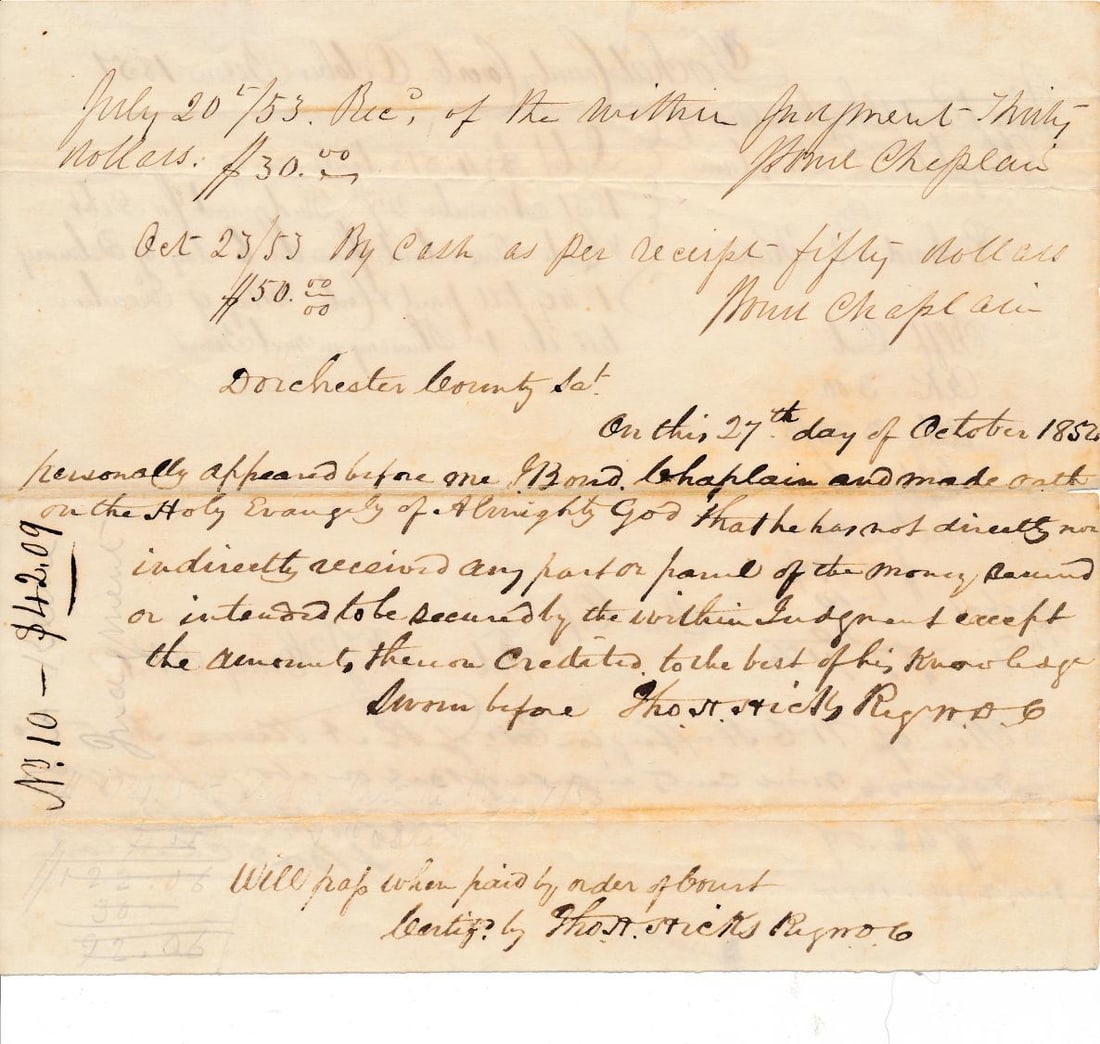 July 20t/53. Recd, of the within Judgment Thirty
dollars. $30.00 Chaplain
Oct 23/53 By Cash as per receipt fifty dollars
$50.00/00 Chaplain
Dorchester County Sct.
On this 27th day of October 1854
personally appeared before me J Bond. Chaplain and made oath
on the Holy Evangely of Almighty God that he has not directly nor
indirectly received any part or parcel of the money secured
or intended to be secured by the within Judgment except
the amounts thereon Credited to the best of his Knowledge
Sworn before Tho. H. Hicks Reg W. D. C
No. 10 – $42.09
Judgment
$122.06
30
92.06
Will pass when paid by order of Court
Certifd. by Tho. H. Hicks Reg W. D. C